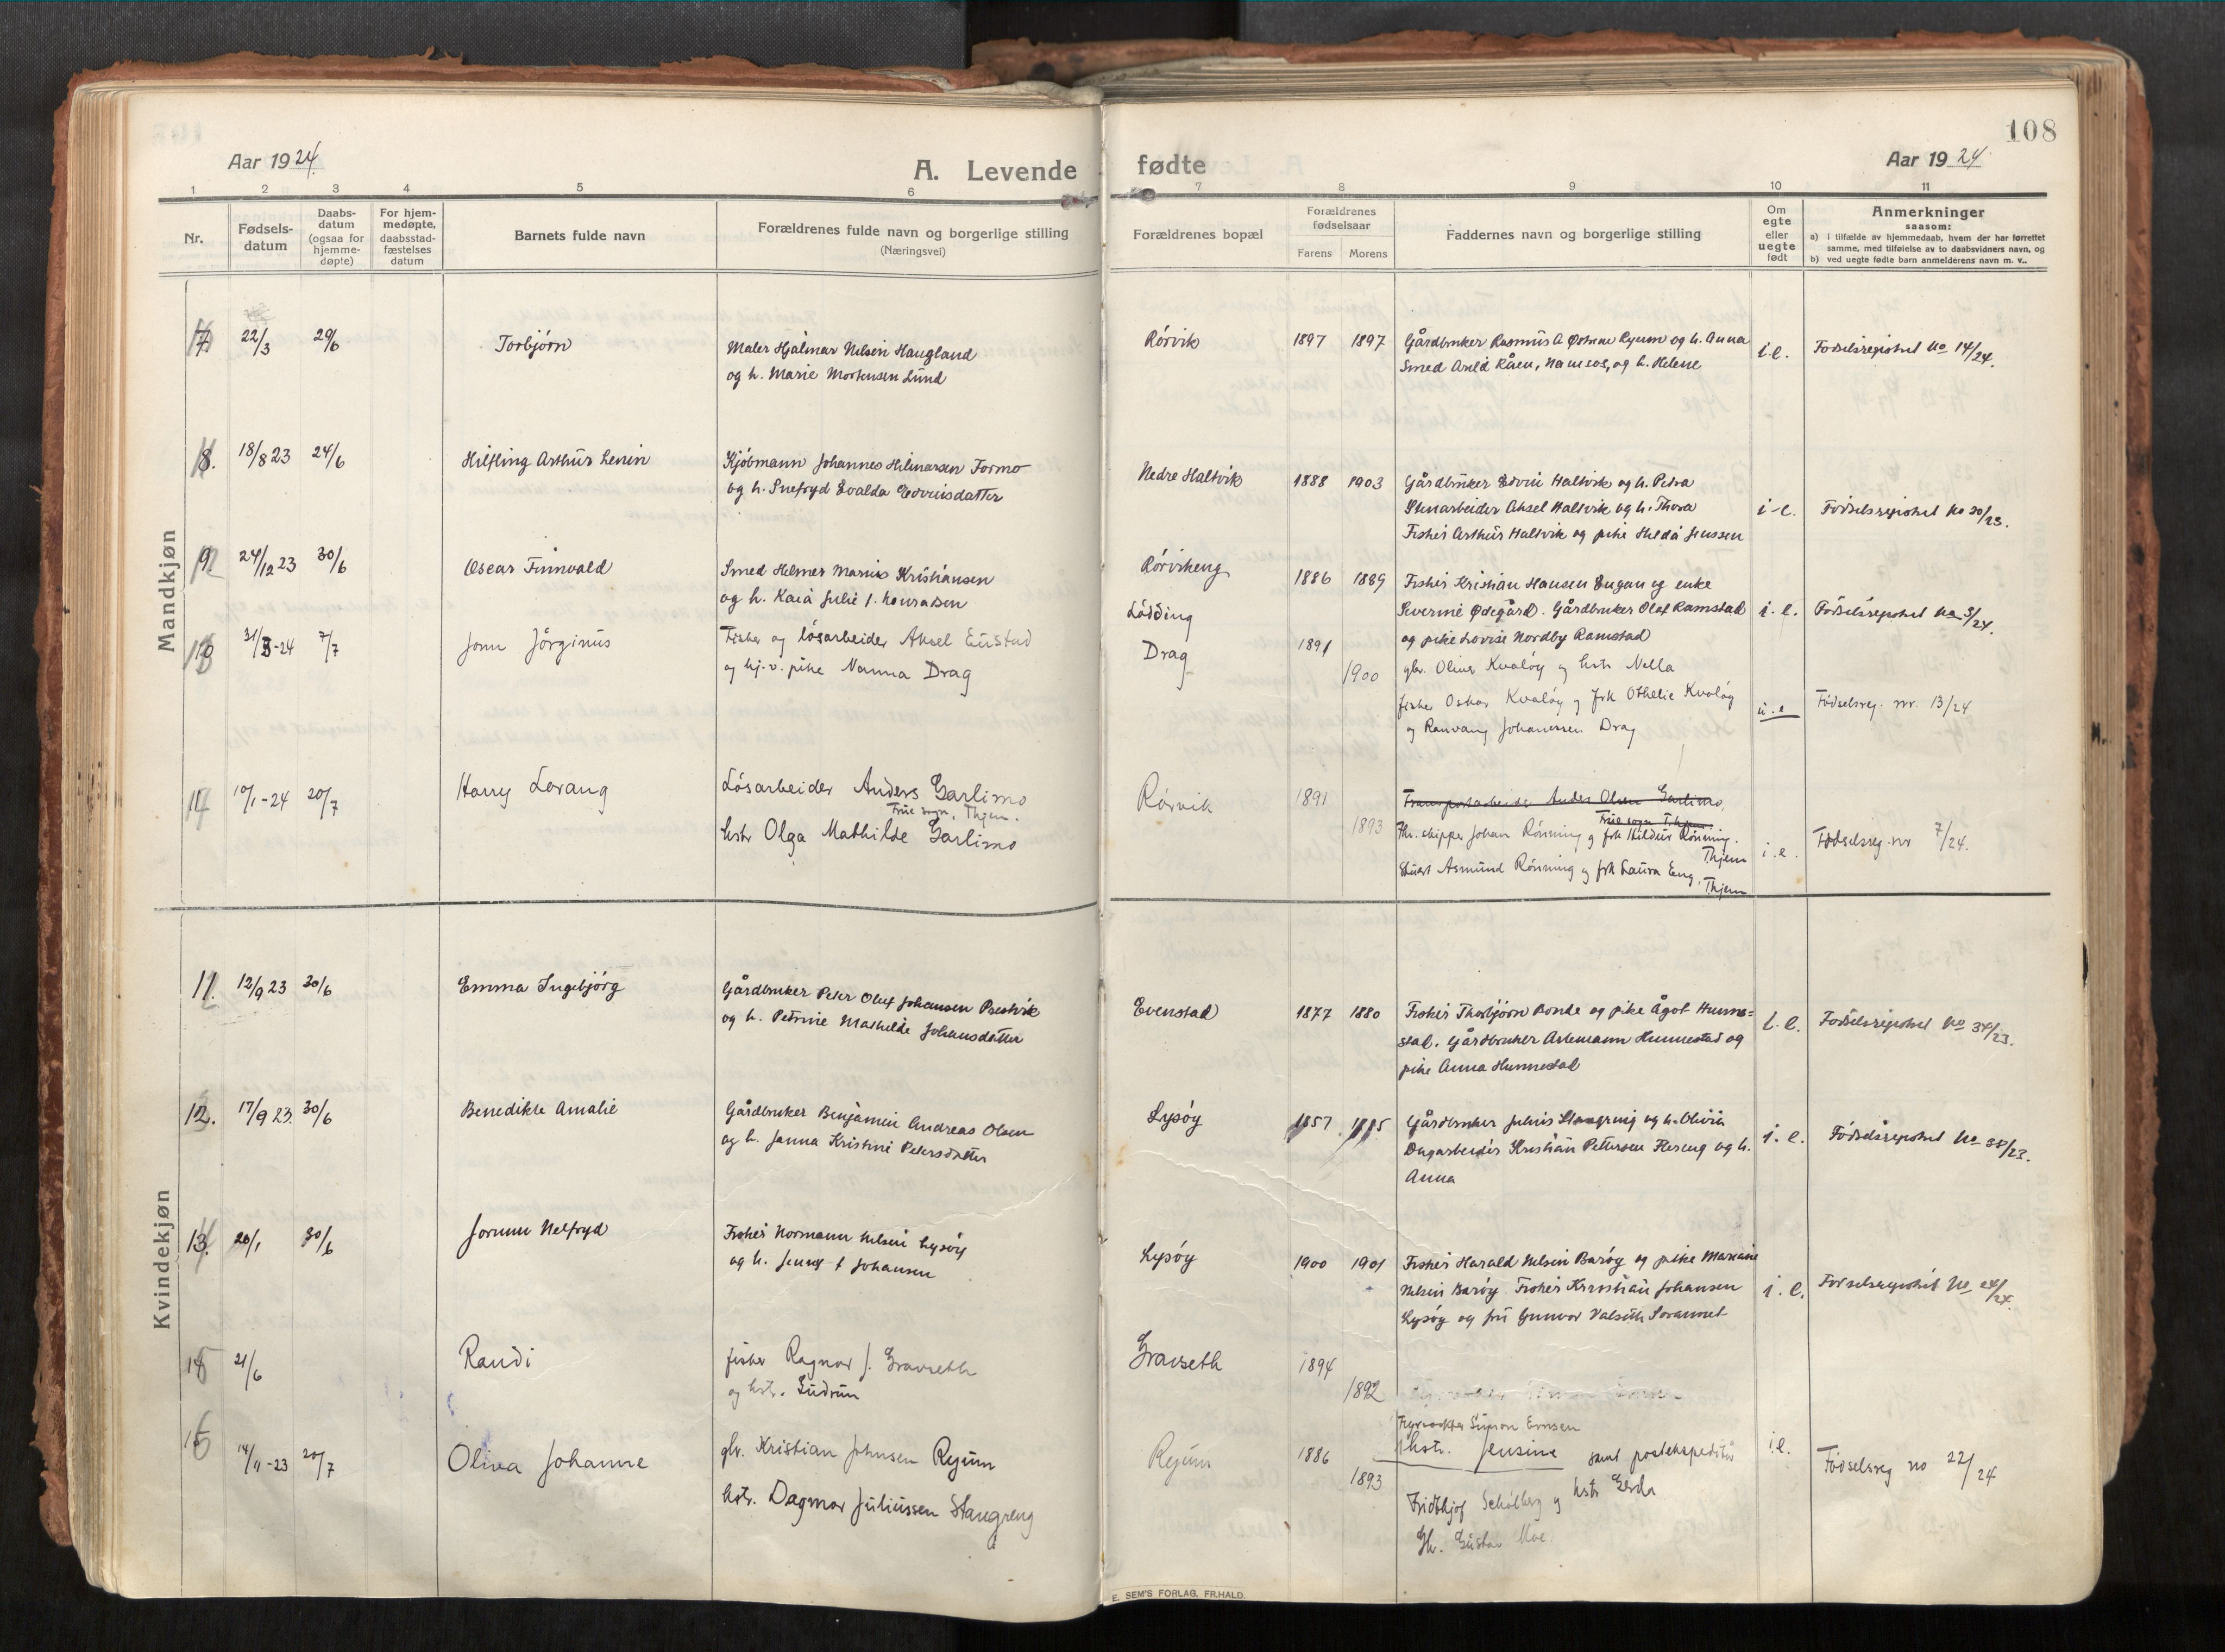 108
Aar 1924
A. Levende fødte
Aar 1924
1 2 3 4 5 6 7 8 9 10 11
Nr.
Fødselsdatum
Daabsdatum (ogsaa for hjemmedøpte)
For hjemmedøpte, daabsstadfæstelses datum
Barnets fulde navn
Forældrenes fulde navn og borgerlige stilling
(Næringsvei)
Forældrenes bopæl
Forældrenes fødselsaar
Farens Morens
Faddernes navn og borgerlige stilling
Om egte eller uegte født
Anmerkninger
saasom:
a) i tilfælde av hjemmedaab, hvem der har forrettet
samme, med tilføielse av to daabsvidners navn, og
b) ved uegte fødte barn anmelderens navn m. v..
Mandkjøn
7 22/3 29/6 Torbjørn
Maler Hjalmar Nilsen Haugland
og h. Marie Mortensen Lund
Rórvik 1897 1897
Gårdbruker Rasmus A Ryum og h. Anna
Smed Råen, Namsos, og h. Helene
i.e. Fødselsregistret No 14/24.
8. 18/8 23 24/6 Hilfling Arthur Lenin
Kjöbmann Johannes Hilmarsen Formo
og h. Snefryd Evalda Edvinsdatter
Nedre Haltvik 1888 1903
Gårdbruker Edvin Haltvik og h. Petra
Stenarbeider Aksel Haltvik og h. Thora
Fisker Arthur Haltvik og pike Hilda Jenssen
i.e. Fødselsregistret No 30/23.
9. 24/12 23 30/6 Oscar Finnvald
Smed Helmer Marius Kristiansen
og h. Kaia Julie f. Konradsen
Rórvikeng 1886 1889
Lódding
Fisker Kristian Hansen Engan og enke
Severine Ødegård. Gårdbruker Olaf Ramstad
og pike Lovise Nordby Ramstad
i.e. Fødselsregistret No 3/24.
10 31/3-24 7/7 Jonn Jörginus
Fisker og lösarbeider Aksel Eustad
og hj.v. pike Nanna Drag
Drag 1891 1900
gbr. Oliver Kvalöy og hstr Nella
fisker Oskar Kvalöy og frk Othelie Kvalöy
og Ranvang Johanessen Drag
u.e Födselsreg. nr. 13/24
11 10/1-24 20/7 Harry Levang
Lösarbeider Anders Garlimo
True sogn, Thjem.
hstr Olga Mathilde Garlimo
Rórvik 1891 1893
Transportarbeider Anders Olsen Garlimo,
True sogn Thjem
Thr. skipper Johan Rönning og frk Hildur Rönning.
Thjem
Stuert Asmund Rönning og frk Laura Eng,
Thjem
i.e. Födselsreg. nr 7/24.
Kvindekjøn
11. 12/9 23 30/6 Emma Ingebjörg
Gårdbruker Peter Oluf Johansen Prestvik
og h. Petrine Mathilde Johansdatter
Evenstad 1877 1880
Fisker Thorbjörn Bonde og pike Ågot Hunne=
stad. Gårdbruker Artemann Hunnestad og
pike Anna Hunnestad
i.e. Fødselsregistret No 34/23.
12. 17/9 23. 30/6 Benedikte Amalie
Gårdbruker Benjamin Andreas Olsen
og h. Janna Kristine Petersdatter
Lysöy 1857 1885
Gårdbruker Julius Staugreng og h. Olivia
Dagarbeider Kristian Pettersen Flereng og h.
Anna
i.e. Fødselsregistret No 38/23.
13. 20/1 30/6 Jorunn Nelfryd
Fisker Normann Nilsen Lysöy
og h. Jenny f Johansen
Lysöy 1900 1901
Fisker Harald Nilsen Baröy og pike Mariane
Nilsen Baröy. Fisker Kristian Johansen
Lysöy og fru Gunvor Valseth Sorannet
i.e. Fødselsregistret No 24/24.
14 21/6 Randi
fisker Ragnar J. Gravseth
og hstr. Gudrun
Gravseth 1894 1892
15 14/11-23 20/7 Oliva Johanne
gbr. Kristian Johnsen Ryum
hstr. Dagmar Juliussen Staugreng
Ryum 1886 1893
Fyrvokter Simon Ernsen
hstr. Jensine samt postekspeditör
Fridthjof Schölberg og hstr Gerda
Gbr. Gustav Moe.
i.e. Födselsreg no 22/24
E. SEM'S FORLAG, FR.HALD.